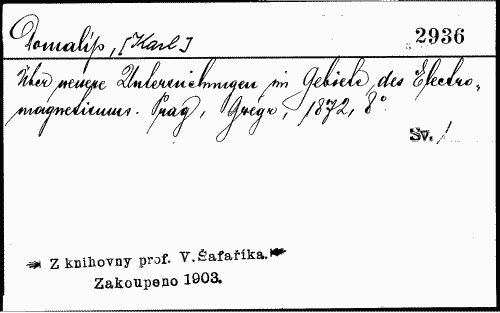 Domalíp, [Karl]
2936
Über neuere Untersuchungen im Gebiete des Electro-
magnetismus. Prag, Grégr, 1872, 8°
Sv. 1
Z knihovny prof. V. Šafaříka.
Zakoupeno 1903.